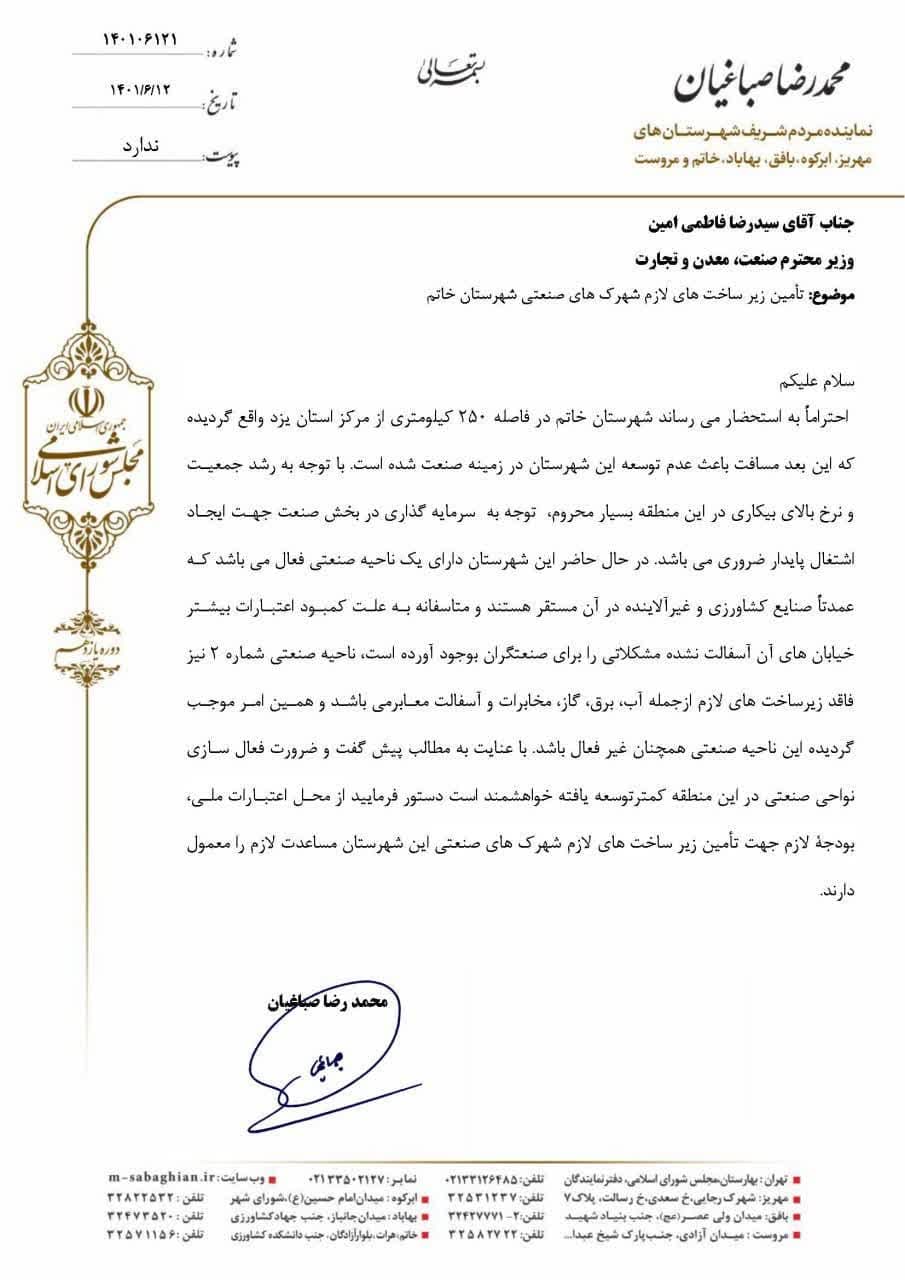 بسمه تعالی
محمدرضا صباغیان
نماینده مردم شریف شهرستان های
مهریز، ابرکوه، بافق، بهاباد، خاتم و مروست
شماره: ۱۴۰۱۰۶۱۲۱
تاریخ: ۱۴۰۱/۶/۱۲
پیوست: ندارد
جناب آقای سیدرضا فاطمی امین
وزیر محترم صنعت، معدن و تجارت
موضوع: تأمین زیر ساخت های لازم شهرک های صنعتی شهرستان خاتم
سلام علیکم
احتراماً به استحضار می رساند شهرستان خاتم در فاصله ۲۵۰ کیلومتری از مرکز استان یزد واقع گردیده
که این بعد مسافت باعث عدم توسعه این شهرستان در زمینه صنعت شده است. با توجه به رشد جمعیت
و نرخ بالای بیکاری در این منطقه بسیار محروم، توجه به سرمایه گذاری در بخش صنعت جهت ایجاد
اشتغال پایدار ضروری می باشد. در حال حاضر این شهرستان دارای یک ناحیه صنعتی فعال می باشد که
عمدتاً صنایع کشاورزی و غیرآلاینده در آن مستقر هستند و متاسفانه به علت کمبود اعتبارات بیشتر
خیابان های آن آسفالت نشده مشکلاتی را برای صنعتگران بوجود آورده است، ناحیه صنعتی شماره ۲ نیز
فاقد زیرساخت های لازم ازجمله آب، برق، گاز، مخابرات و آسفالت معابرمی باشد و همین امر موجب
گردیده این ناحیه صنعتی همچنان غیر فعال باشد. با عنایت به مطالب پیش گفت و ضرورت فعال سازی
نواحی صنعتی در این منطقه کمترتوسعه یافته خواهشمند است دستور فرمایید از محل اعتبارات ملی،
بودجۀ لازم جهت تأمین زیر ساخت های لازم شهرک های صنعتی این شهرستان مساعدت لازم را معمول
دارند.
جمهوری اسلامی ایران
مجلس شورای اسلامی
دوره یازدهم
محمد رضا صباغیان
تهران: بهارستان،مجلس شورای اسلامی، دفترنمایندگان تلفن: ۰۲۱۳۳۱۲۶۴۸۵ نمابر: ۰۲۱۳۳۵۰۲۱۲۷ وب سایت: m-sabaghian.ir
مهریز: شهرک رجایی،خ سعدی،خ رسالت، پلاک۷ تلفن: ۳۲۵۳۱۲۳۷ ابرکوه : میدان امام حسین(ع)،شورای شهر تلفن : ۳۲۸۲۲۵۳۲
بافق: میدان ولی عصر(عج)، جنب بنیاد شهید تلفن: ۲-۳۲۴۲۷۷۷۱ بهاباد: میدان جانباز، جنب جهادکشاورزی تلفن : ۳۲۴۷۳۵۲۰
مروست : میدان آزادی، جنب پارک شیخ عبدا... تلفن: ۳۲۵۸۲۷۲۲ خاتم،هرات،بلوارآزادگان، جنب دانشکده کشاورزی تلفن : ۳۲۵۷۱۱۵۶